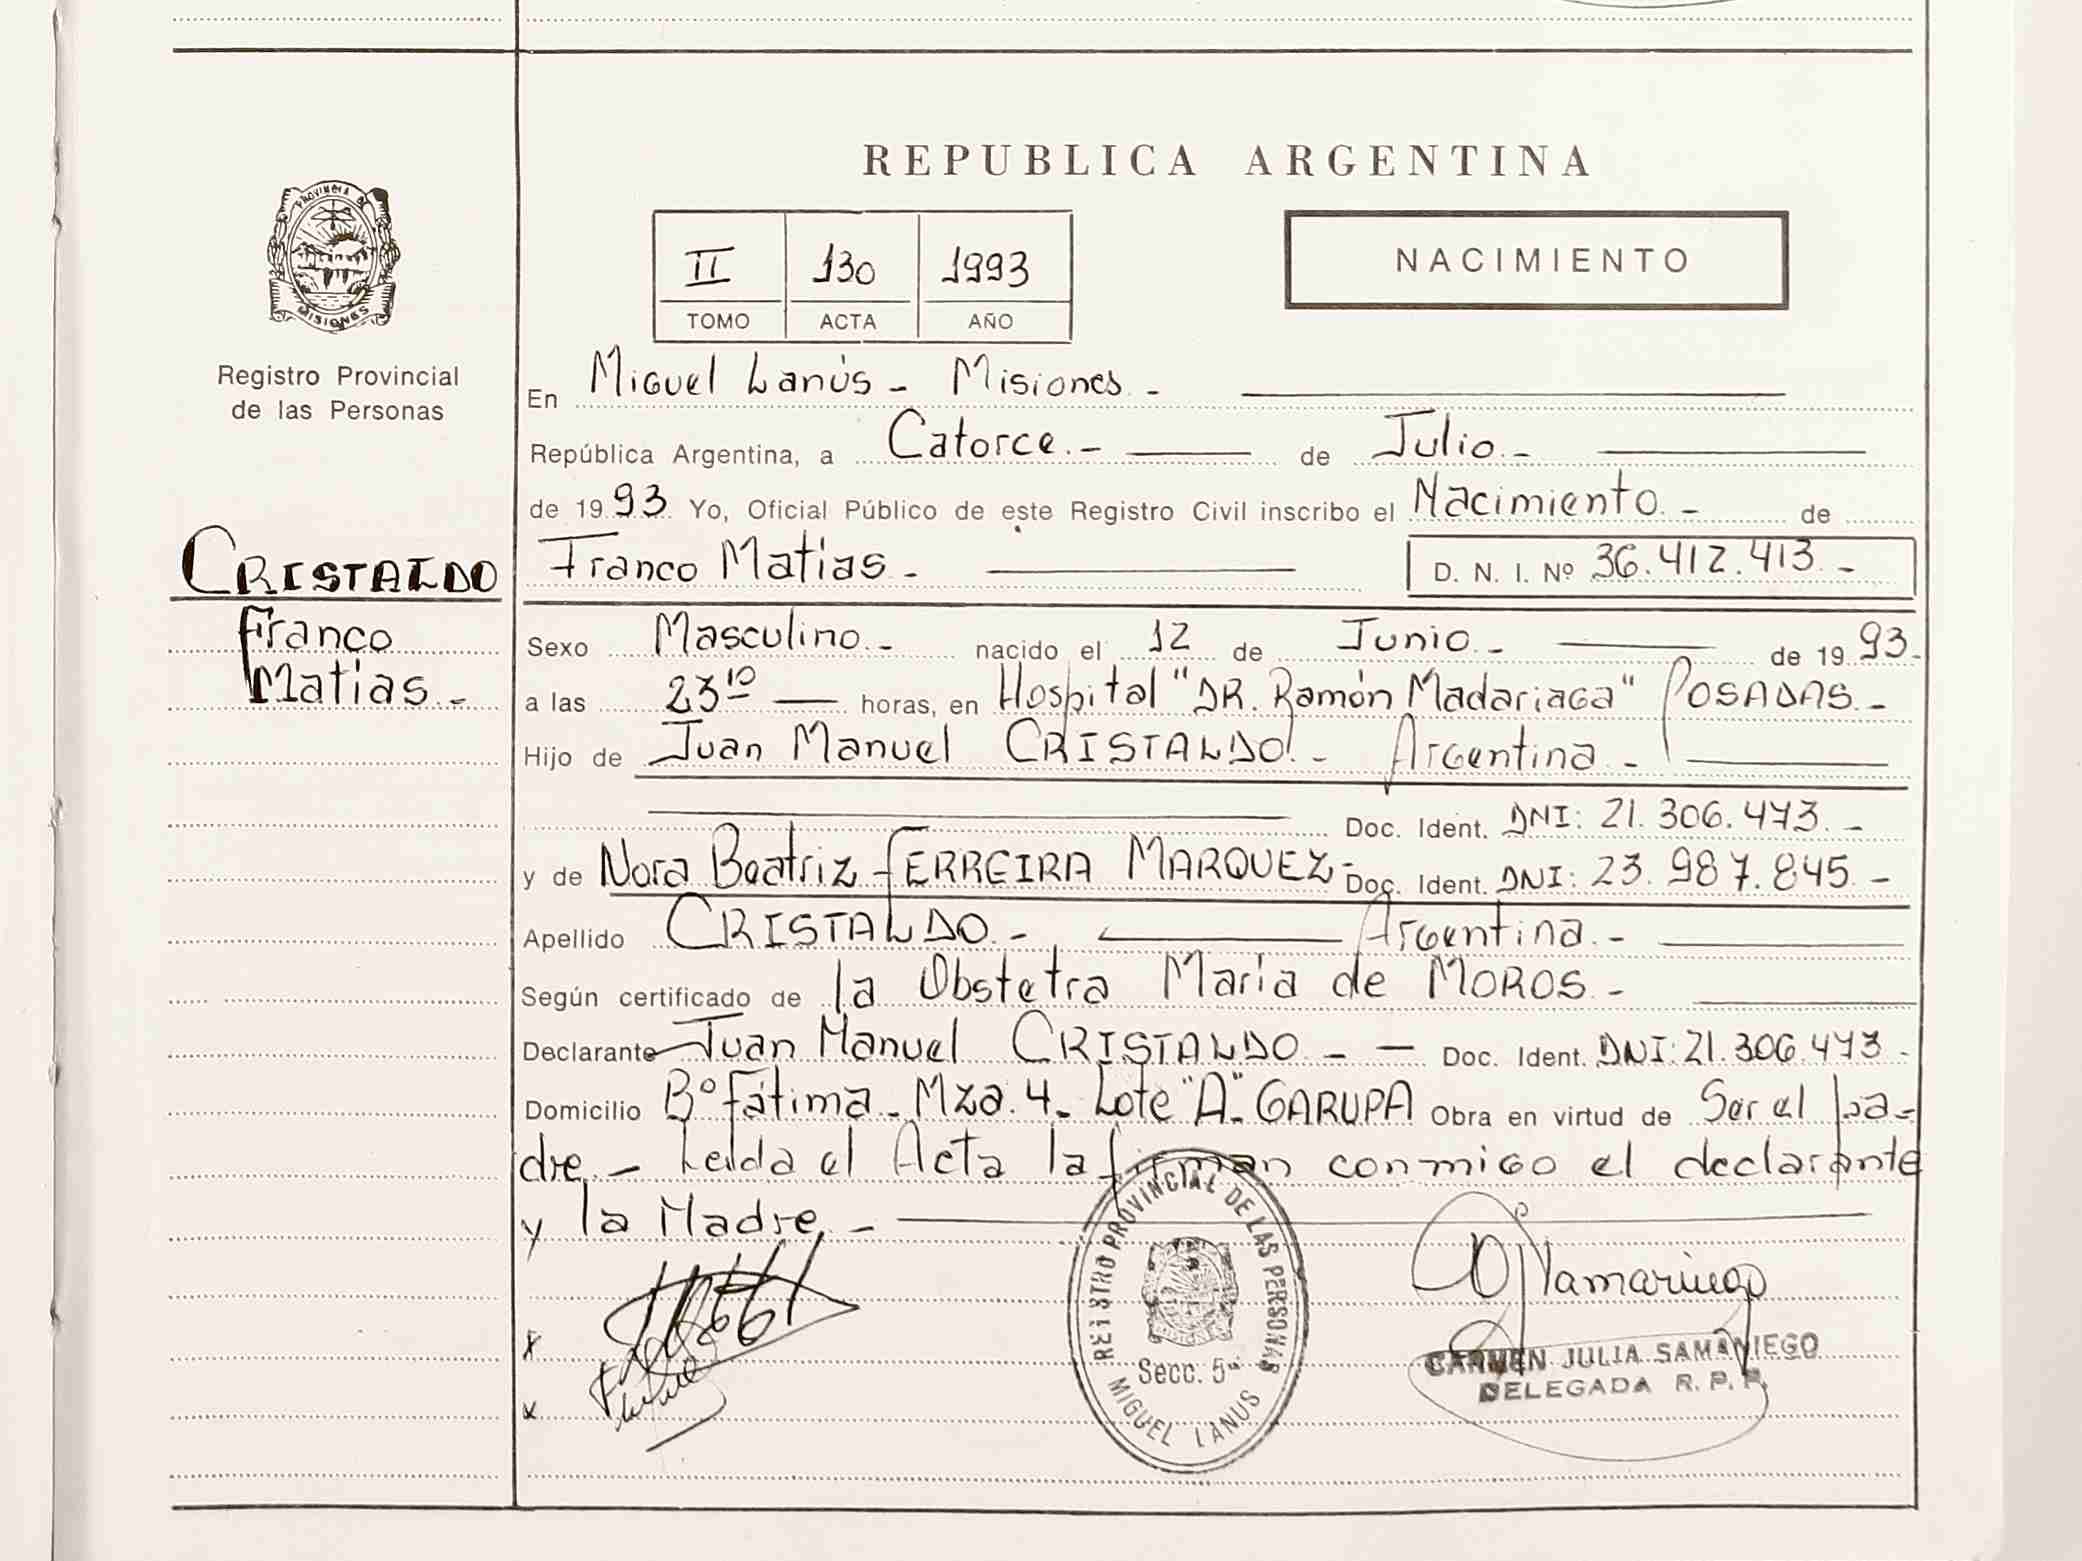 REPUBLICA ARGENTINA
PROVINCIA DE
MISIONES
Registro Provincial
de las Personas
II 130 1993
TOMO ACTA AÑO
NACIMIENTO
En Miguel Lanús - Misiones -
República Argentina, a Catorce.- de Julio.-
de 1993 Yo, Oficial Público de este Registro Civil inscribo el Nacimiento.- de
CRISTALDO
Franco
Matias.-
Franco Matias.- D. N. I. Nº 36.412.413.-
Sexo Masculino.- nacido el 12 de Junio.- de 1993.-
a las 23¹⁰ horas, en Hospital "DR. Ramón Madariaga" POSADAS.-
Hijo de Juan Manuel CRISTALDO.- Argentina.-
Doc. Ident. DNI: 21.306.473.-
y de Nora Beatriz FERREIRA MARQUEZ.- Doc. Ident. DNI: 23.987.845.-
Apellido CRISTALDO.- Argentina.-
Según certificado de la Obstetra Maria de MOROS.-
Declarante Juan Manuel CRISTALDO - - Doc. Ident. DNI: 21.306.473.-
Domicilio Bº Fátima - Mza. 4 - Lote "A"- GARUPA Obra en virtud de Ser el pa-
dre.- Leída el Acta la firman conmigo el declarante
y la Madre.-
REGISTRO PROVINCIAL DE LAS PERSONAS
Secc. 5ª
MIGUEL LANUS
CARMEN JULIA SAMANIEGO
DELEGADA R. P. P.